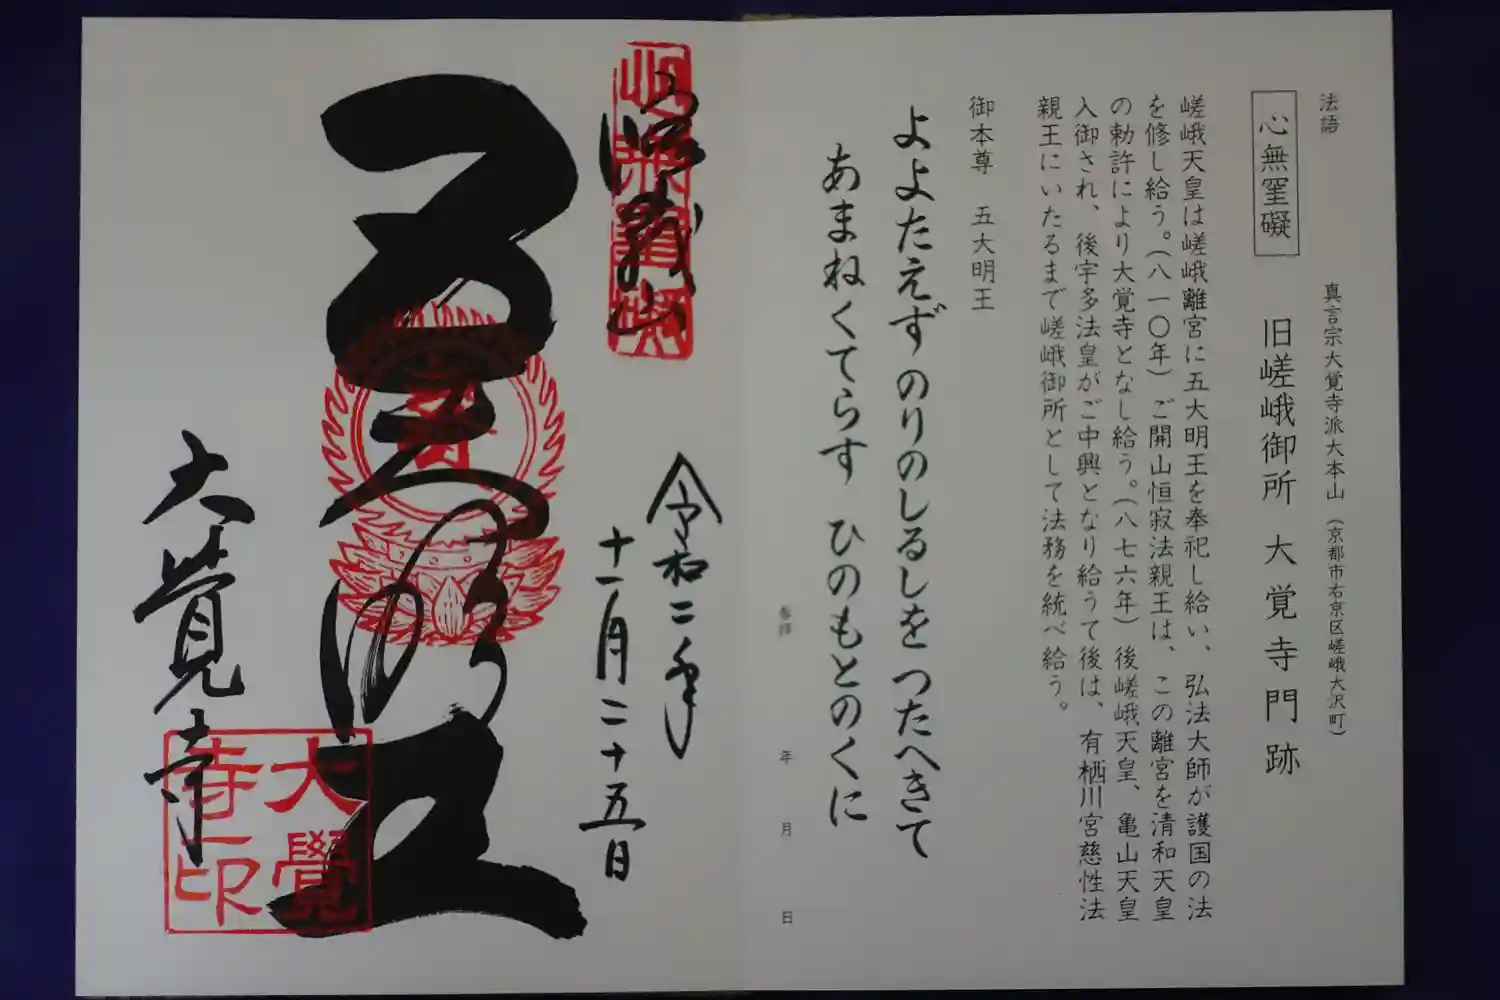 法語
心無罣礙
真言宗大覚寺派大本山（京都市右京区嵯峨大沢町）
旧嵯峨御所 大覚寺門跡
嵯峨天皇は嵯峨離宮に五大明王を奉祀し給い、弘法大師が護国の法
を修し給う。（八一〇年）ご開山恒寂法親王は、この離宮を清和天皇
の勅許により大覚寺となし給う。（八七六年）後嵯峨天皇、亀山天皇
入御され、後宇多法皇がご中興となり給うて後は、有栖川宮慈性法
親王にいたるまで嵯峨御所として法務を統べ給う。
御本尊 五大明王
よよたえず のりのしるしを つたへきて
あまねくてらす ひのもとのくに
参拝 年 月 日
心無罣礙
嵯峨山
令和二年
十一月二十五日
五大明王
大覚寺
大覺寺印